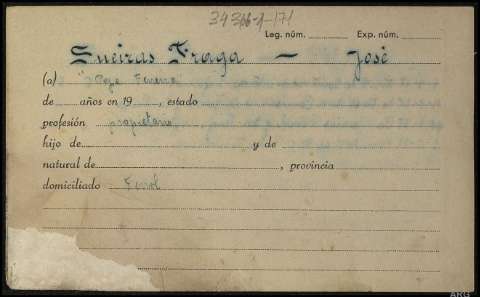 Leg. núm. Exp. núm.
Sueiras Fraga — José
(a) "Pepe
de años en 19 , estado
profesión propietario
hijo de y de
natural de , provincia
domiciliado Ferrol
ARG